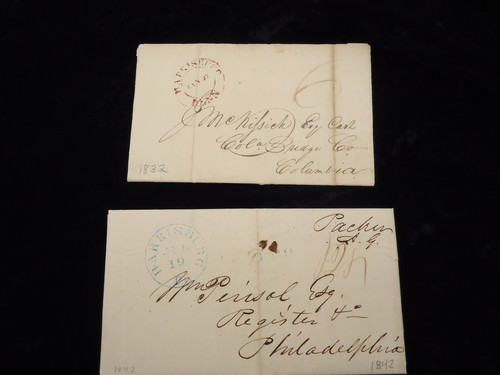 HARRISBURG
6
J McKissick Esq Cash
Cola Bridge Co
Columbia
1832
HARRISBURG
19
Packer
S. G.
12½
Wm Pinsol Esq.
Register &c
Philadelphia
1842
1842